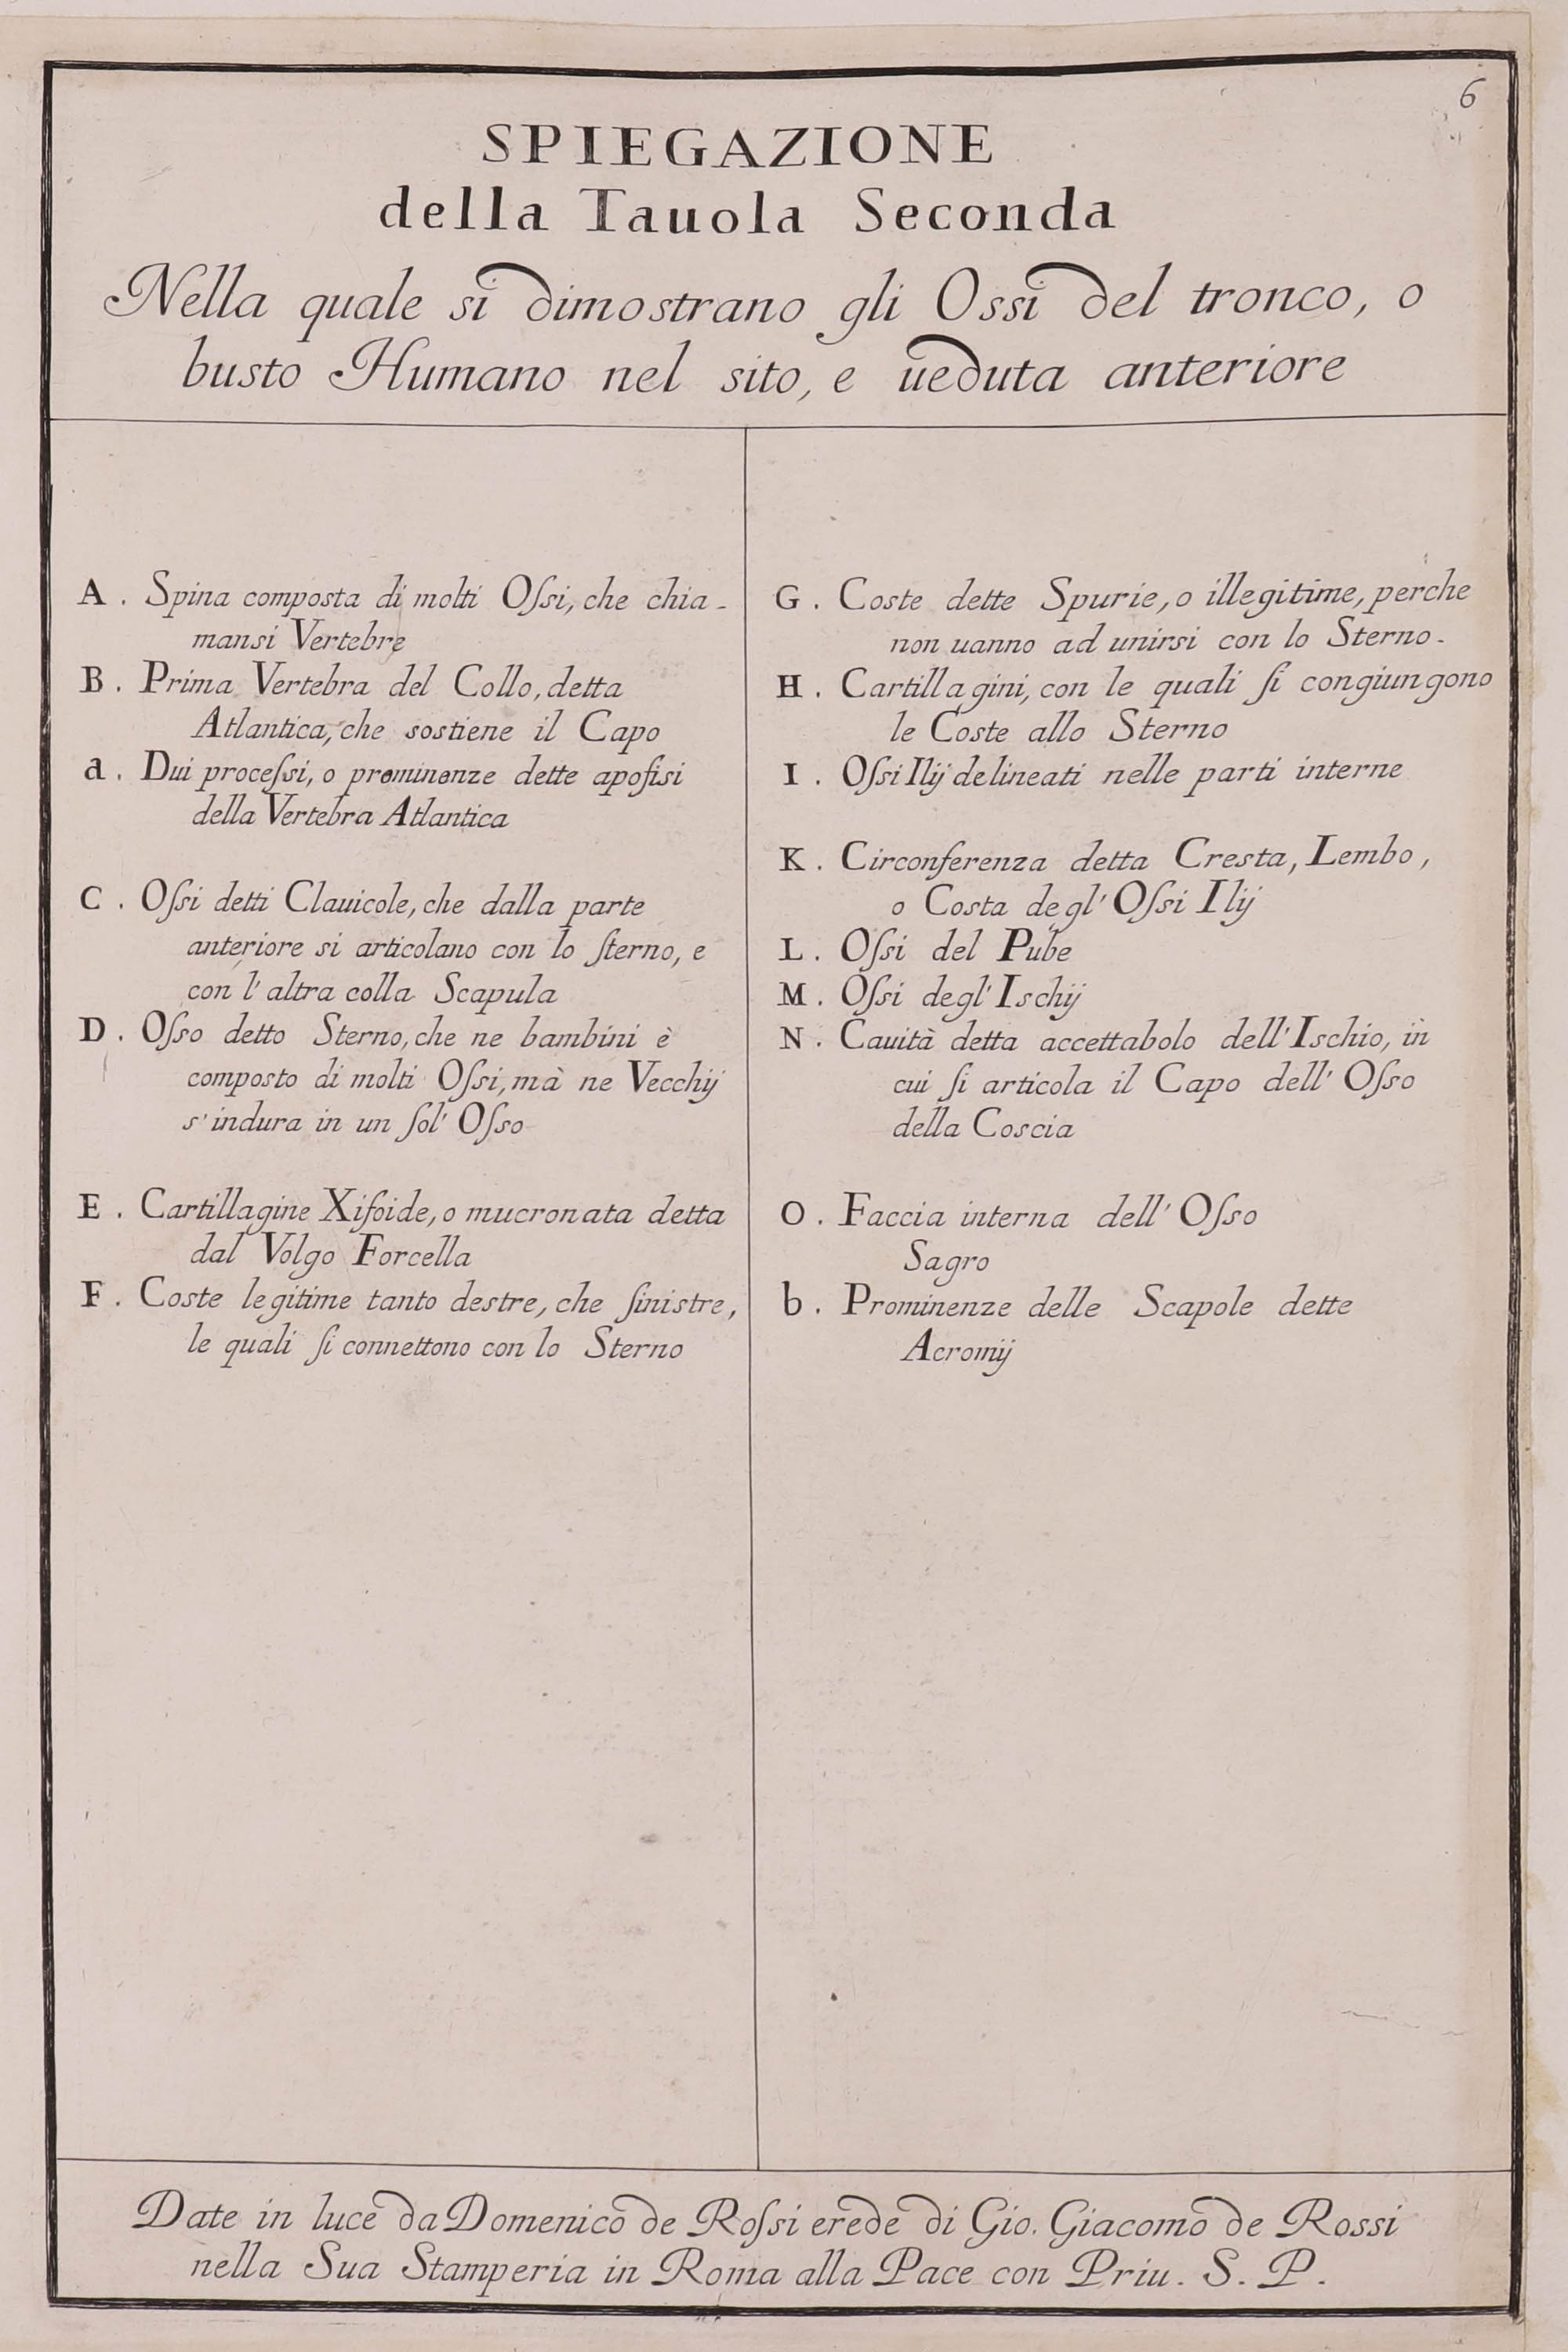 6
SPIEGAZIONE
della Tauola Seconda
Nella quale si dimostrano gli Ossi del tronco, o
busto Humano nel sito, e ueduta anteriore
A. Spina composta di molti Oſsi, che chia-
mansi Vertebre
B. Prima Vertebra del Collo, detta
Atlantica, che sostiene il Capo
a. Dui proceſsi, o prominenze dette apofisi
della Vertebra Atlantica
C. Oſsi detti Clauicole, che dalla parte
anteriore si articolano con lo ſterno, e
con l'altra colla Scapula
D. Oſso detto Sterno, che ne bambini è
composto di molti Oſsi, mà ne Vecchij
s'indura in un ſol' Oſso
E. Cartillagine Xifoide, o mucronata detta
dal Volgo Forcella
F. Coste legitime tanto destre, che ſinistre,
le quali ſi connettono con lo Sterno
G. Coste dette Spurie, o illegitime, perche
non uanno ad unirsi con lo Sterno.
H. Cartillagini, con le quali ſi congiungono
le Coste allo Sterno
I. Oſsi Ilij delineati nelle parti interne
K. Circonferenza detta Cresta, Lembo,
o Costa degl' Oſsi Ilij
L. Oſsi del Pube
M. Oſsi degl' Ischij
N. Cauità detta accettabolo dell' Ischio, in
cui ſi articola il Capo dell' Oſso
della Coscia
O. Faccia interna dell' Oſso
Sagro
b. Prominenze delle Scapole dette
Acromij
Date in luce da Domenico de Roſsi erede di Gio. Giacomo de Rossi
nella Sua Stamperia in Roma alla Pace con Priu. S. P.